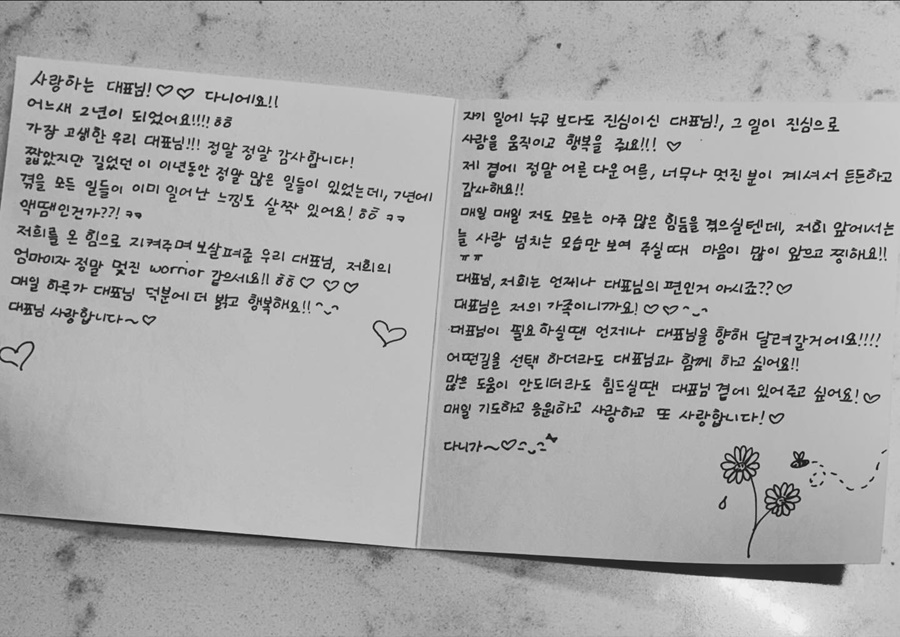 사랑하는 대표님!♡♡ 다니에요!!
어느새 2년이 되었어요!!!! ㅎㅎ
가장 고생한 우리 대표님!!! 정말 정말 감사합니다!
짧았지만 길었던 이 이년동안 정말 많은 일들이 있었는데, 7년에
겪을 모든 일들이 이미 일어난 느낌도 살짝 있어요! ㅎㅎ ㅋㅋ
액땜인건가??! ㅋㅋ
저희를 온 힘으로 지켜주며 보살펴준 우리 대표님, 저희의
엄마이자 정말 멋진 worrior 같으세요!! ㅎㅎ ♡ ♡ ♡
매일 하루가 대표님 덕분에 더 밝고 행복해요!! ^_^
대표님 사랑합니다~♡
자기 일에 누구 보다도 진심이신 대표님!, 그 일이 진심으로
사람을 움직이고 행복을 줘요!!! ♡
제 곁에 정말 어른 다운 어른, 너무나 멋진 분이 계셔서 든든하고
감사해요!!
매일 매일 저도 모르는 아주 많은 힘듬을 겪으실텐데, 저희 앞에서는
늘 사랑 넘치는 모습만 보여 주실때 마음이 많이 앞으고 찡해요!!
ㅠㅠ
대표님, 저희는 언제나 대표님의 편인거 아시죠??♡
대표님은 저의 가족이니까요! ♡♡ ^_^
대표님이 필요하실땐 언제나 대표님을 향해 달려갈거에요!!!!
어떤길을 선택 하더라도 대표님과 함께 하고 싶어요!!
많은 도움이 안되더라도 힘드실땐 대표님 곁에 있어주고 싶어요!♡
매일 기도하고 응원하고 사랑하고 또 사랑합니다!♡
다니가~♡^_^